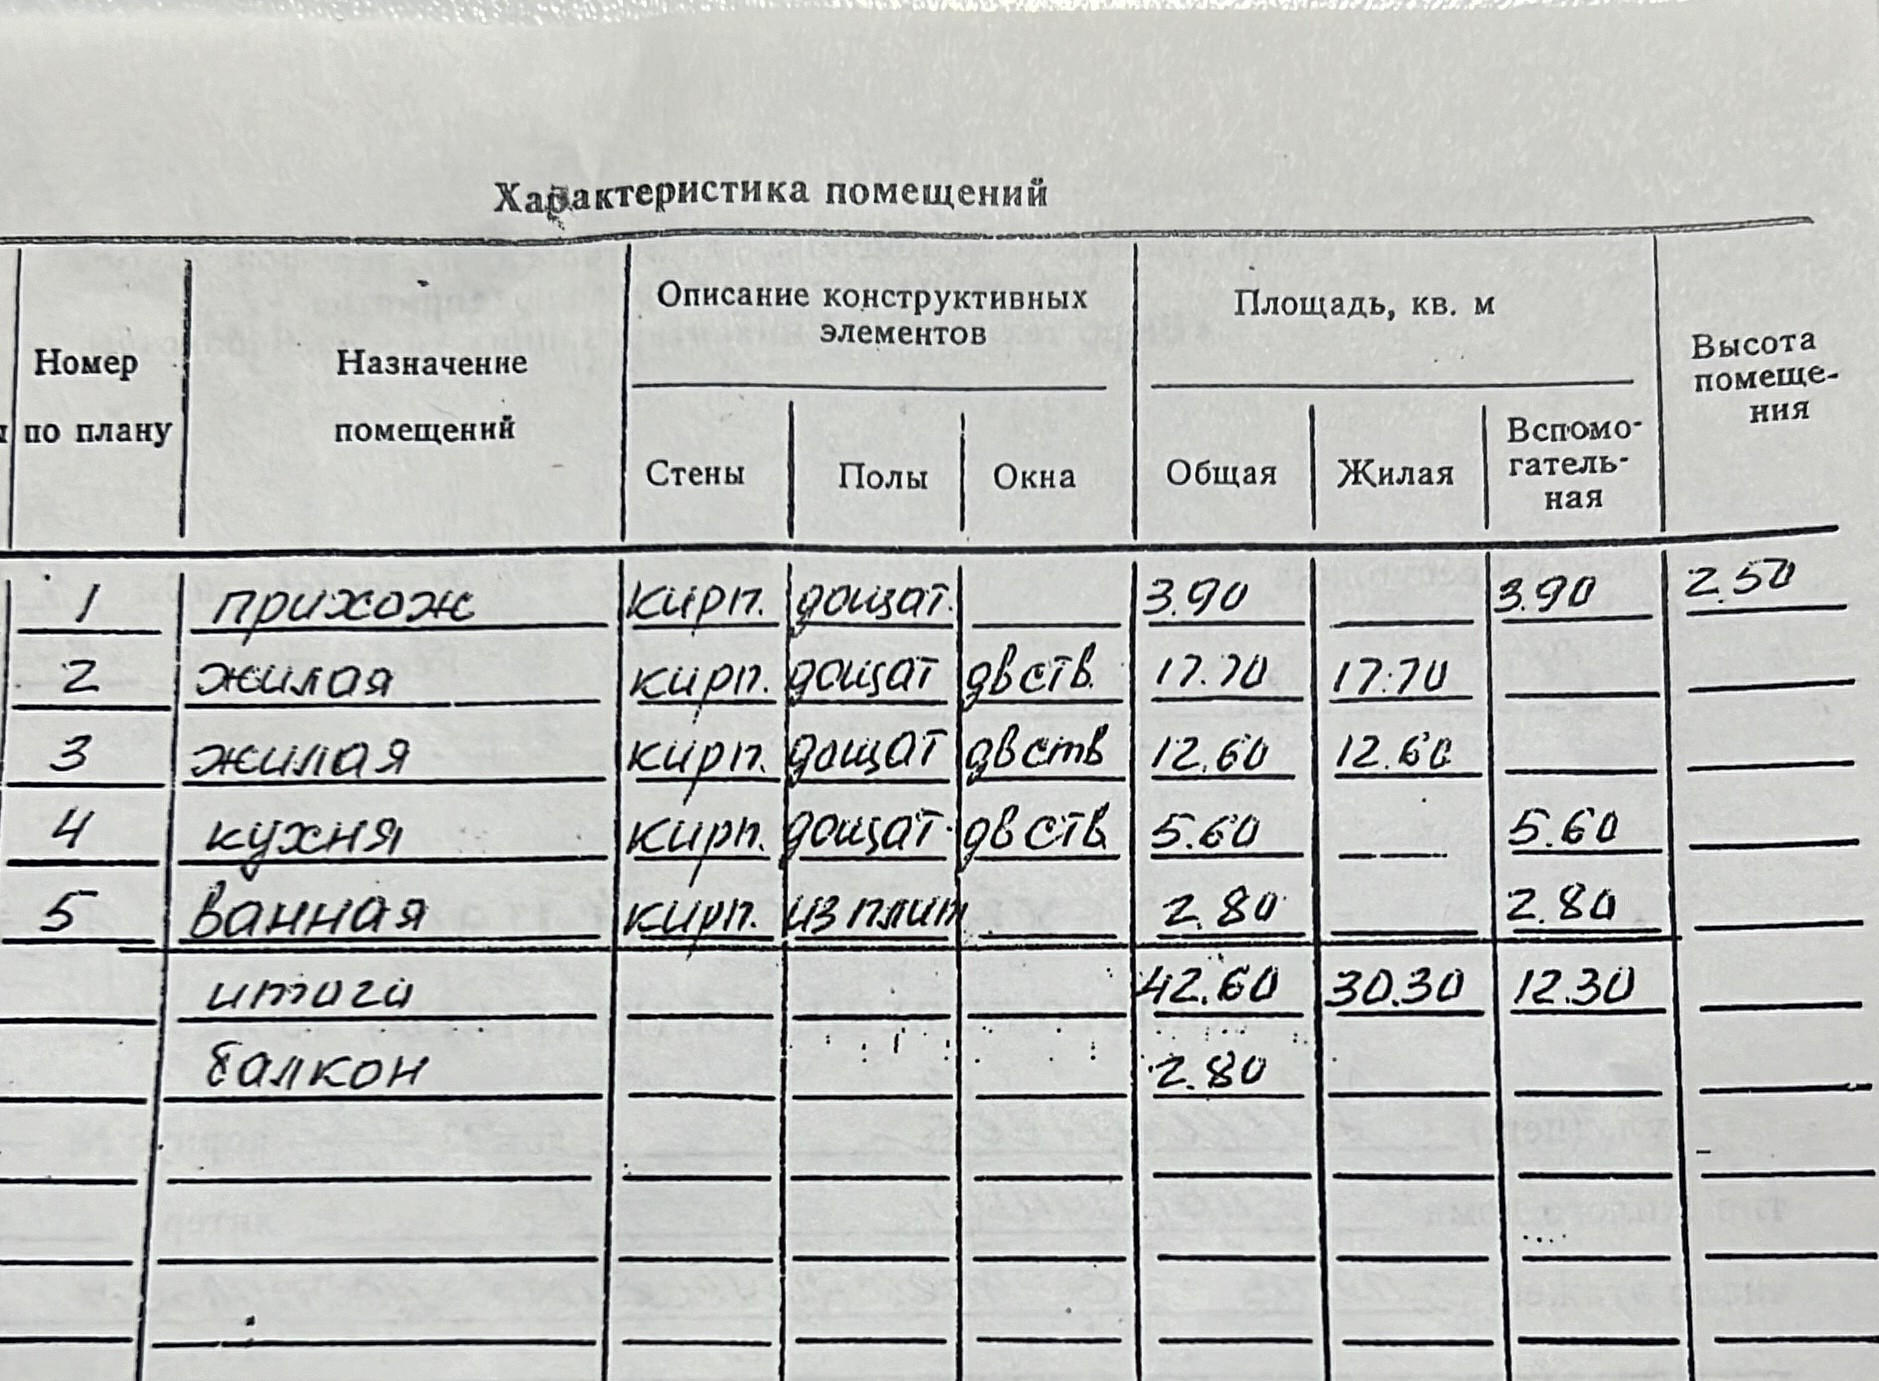 Характеристика помещений
Номер по плану
Назначение помещений
Описание конструктивных элементов
Стены Полы Окна
Площадь, кв. м
Общая Жилая Вспомо-гатель-ная
Высота помеще-ния
1 прихож кирп. дощат. 3.90 3.90 2.50
2 жилая кирп. дощат двств. 17.70 17.70
3 жилая кирп. дощат двств 12.60 12.60
4 кухня кирп. дощат. двств. 5.60 — 5.60
5 ванная кирп. из плит 2.80 2.80
итого 42.60 30.30 12.30
балкон 2.80